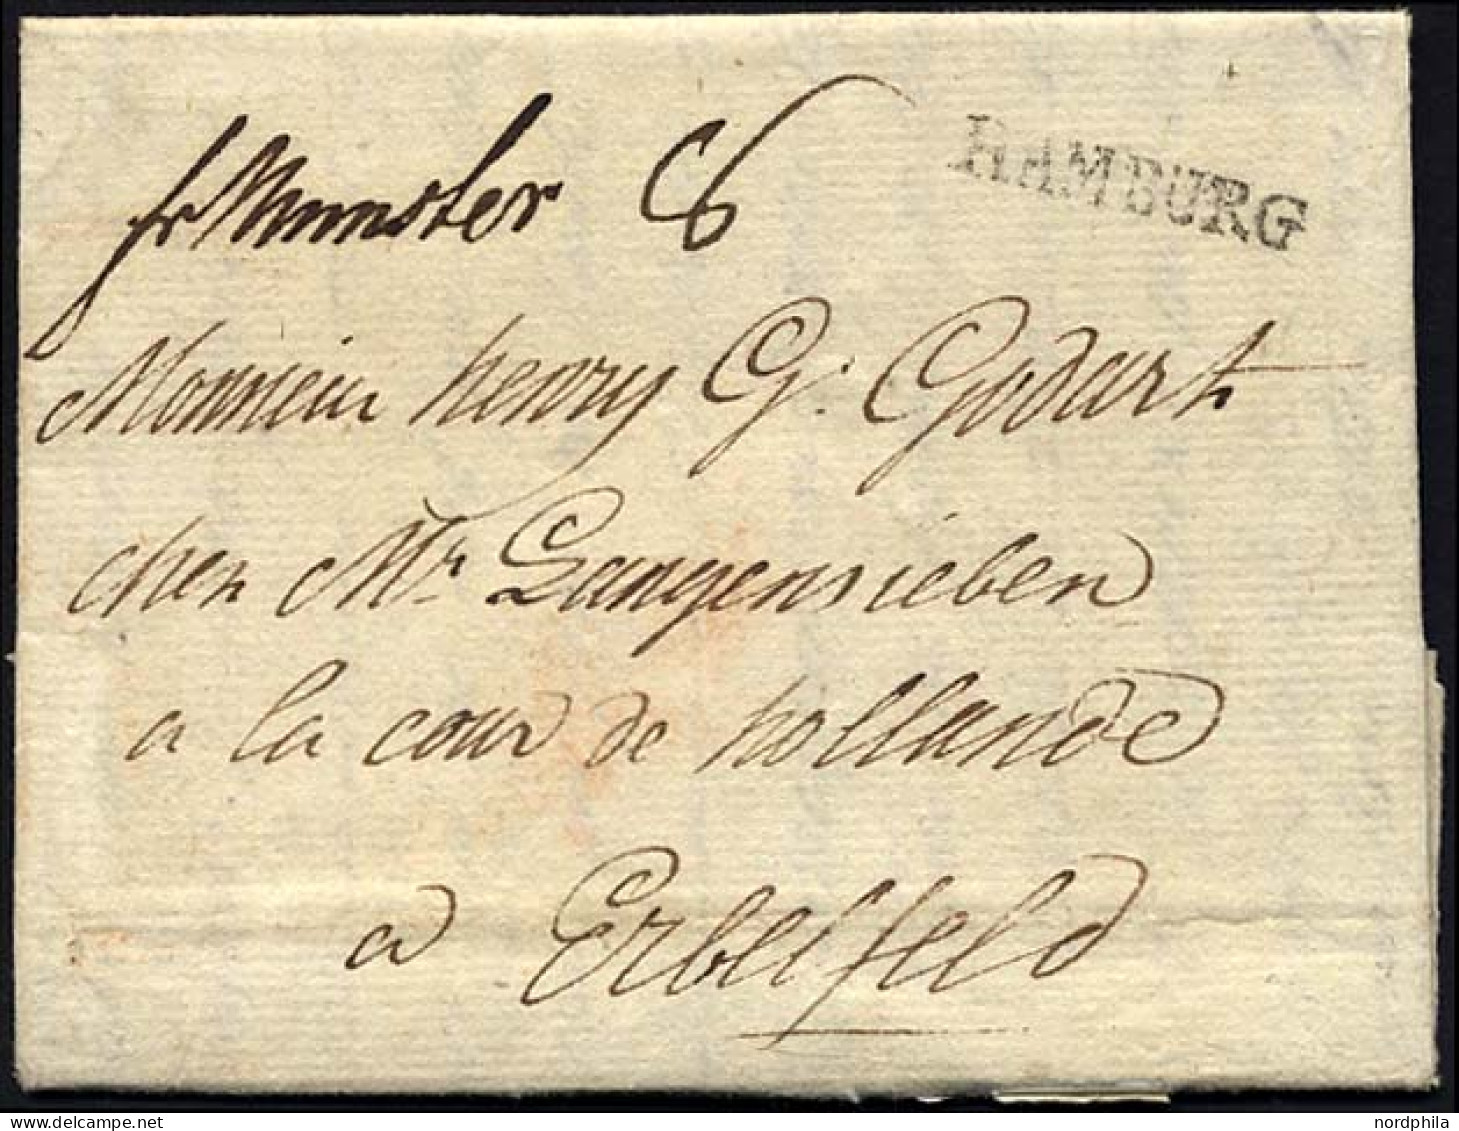 fr Munster
HAMBURG
Monsieur henry G. Godart
chez Mr. Langensieben
a la cour de hollande
a Erbelfeld
nordphila